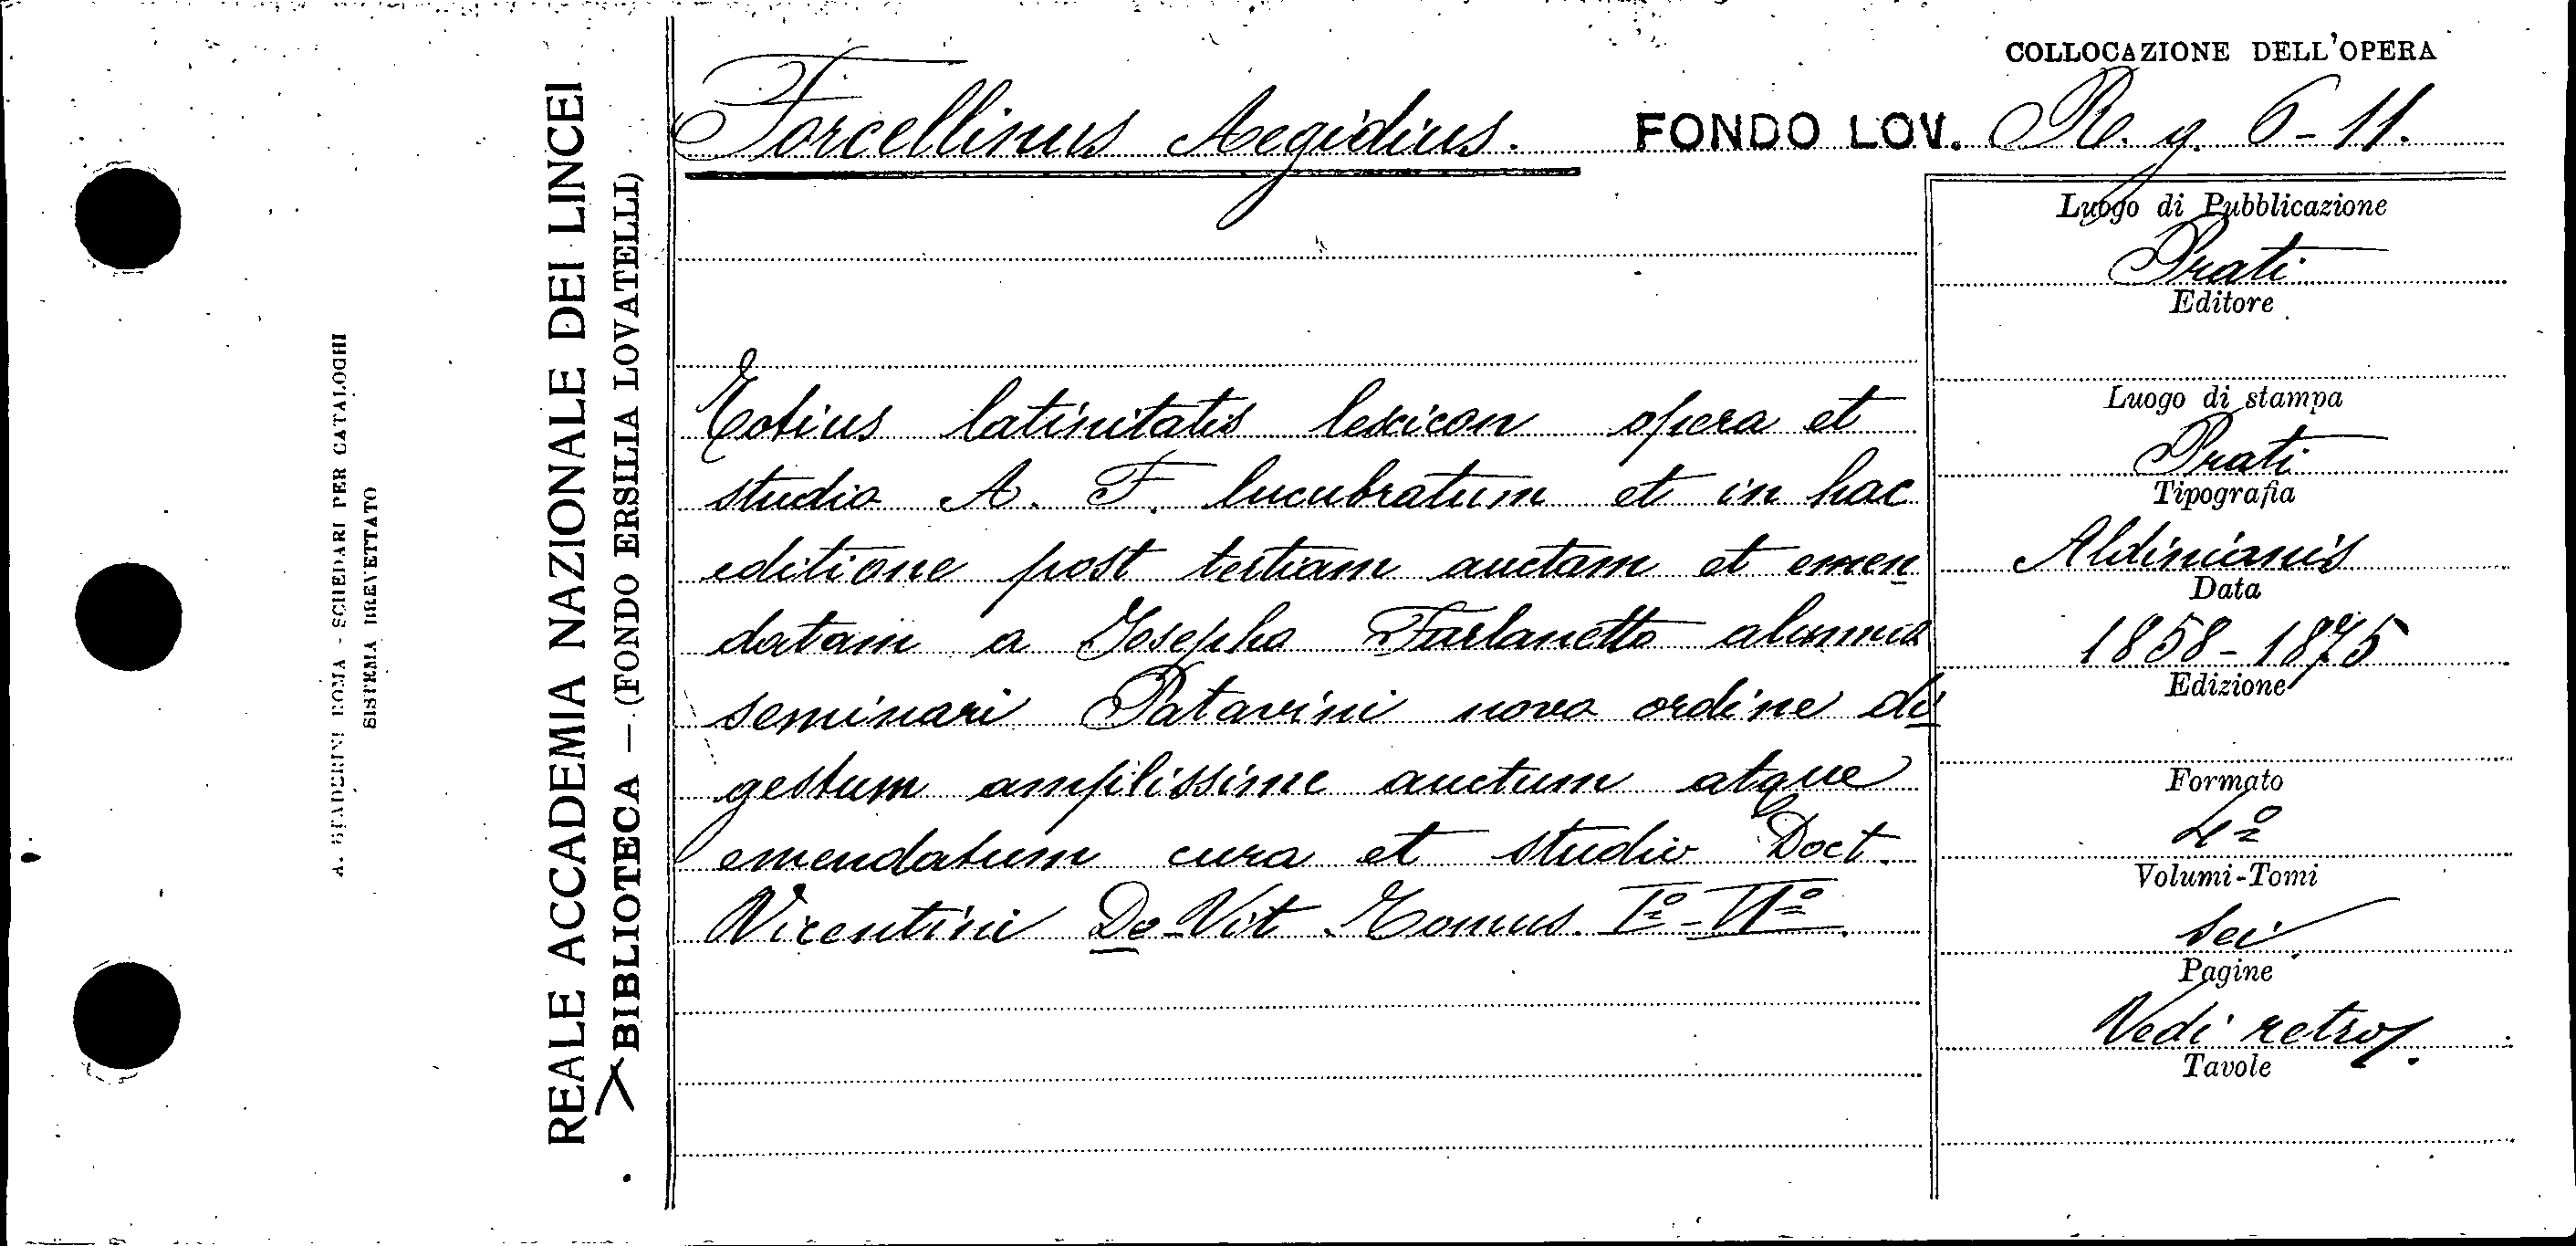 A. STADERINI ROMA - SCHEDARI PER CATALOGHI
SISTEMA BREVETTATO
REALE ACCADEMIA NAZIONALE DEI LINCEI
BIBLIOTECA — (FONDO ERSILIA LOVATELLI)
COLLOCAZIONE DELL'OPERA
Forcellinus Aegidius. FONDO LOV. Re. g. 6-11.
Totius latinitatis lexicon opera et
studio A. F. lucubratum et in hac
editione post tertiam auctam et emen
datam a Josepho Furlanetto alumno
seminari Patavini novo ordine di
gestum amplissime auctum atque
emendatum cura et studio Doct.
Vicentini De-Vit Tomus Iº-VIº.
Luogo di Pubblicazione
Prati
Editore
Luogo di stampa
Prati
Tipografia
Aldinianis
Data
1858-1875
Edizione
Formato
4º
Volumi-Tomi
sei
Pagine
Vedi retro
Tavole